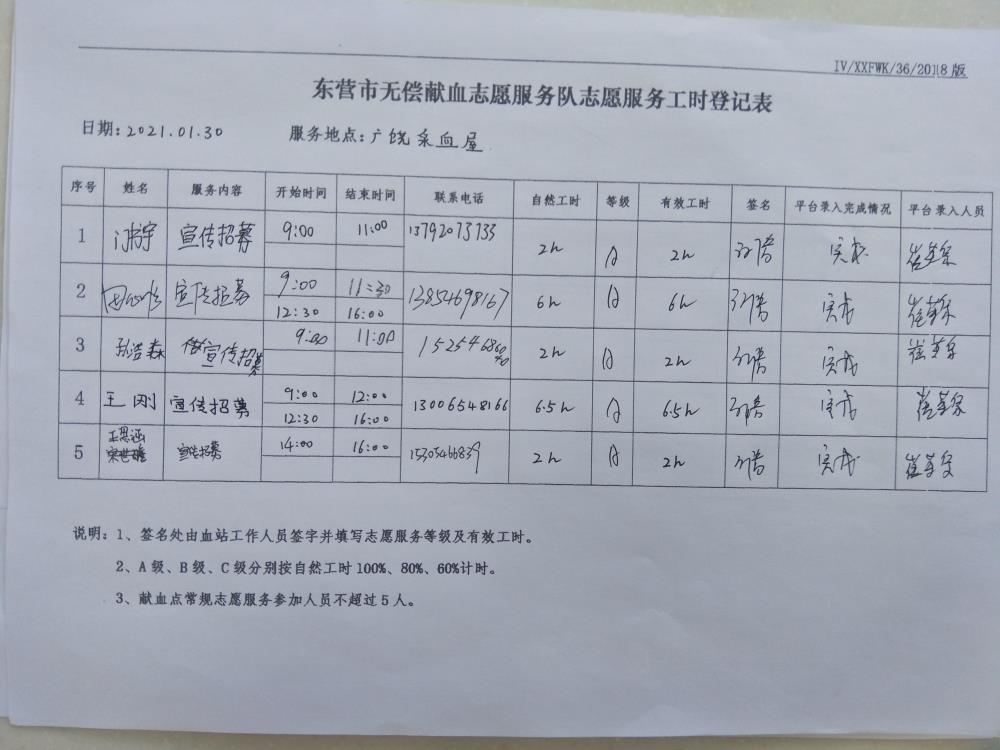 IV/XXFWK/36/2018版
东营市无偿献血志愿服务队志愿服务工时登记表
日期:2021.01.30 服务地点:广饶采血屋
序号 姓名 服务内容 开始时间 结束时间 联系电话 自然工时 等级 有效工时 签名 平台录入完成情况 平台录入人员
1 宣传招募 9:00 11:00 13792073733 2h A 2h 完成
2 宣传招募 9:00 11:30 13854698167 6h A 6h 完成
12:30 16:00
3 孙浩森 宣传招募 9:00 11:00 2h A 2h 完成
4 王刚 宣传招募 9:00 12:00 13006548166 6.5h A 6.5h 完成
12:30 16:00
5 王思涵 宣传招募 14:00 16:00 15305466839 2h A 2h 完成
说明:1、签名处由血站工作人员签字并填写志愿服务等级及有效工时。
2、A级、B级、C级分别按自然工时100%、80%、60%计时。
3、献血点常规志愿服务参加人员不超过5人。